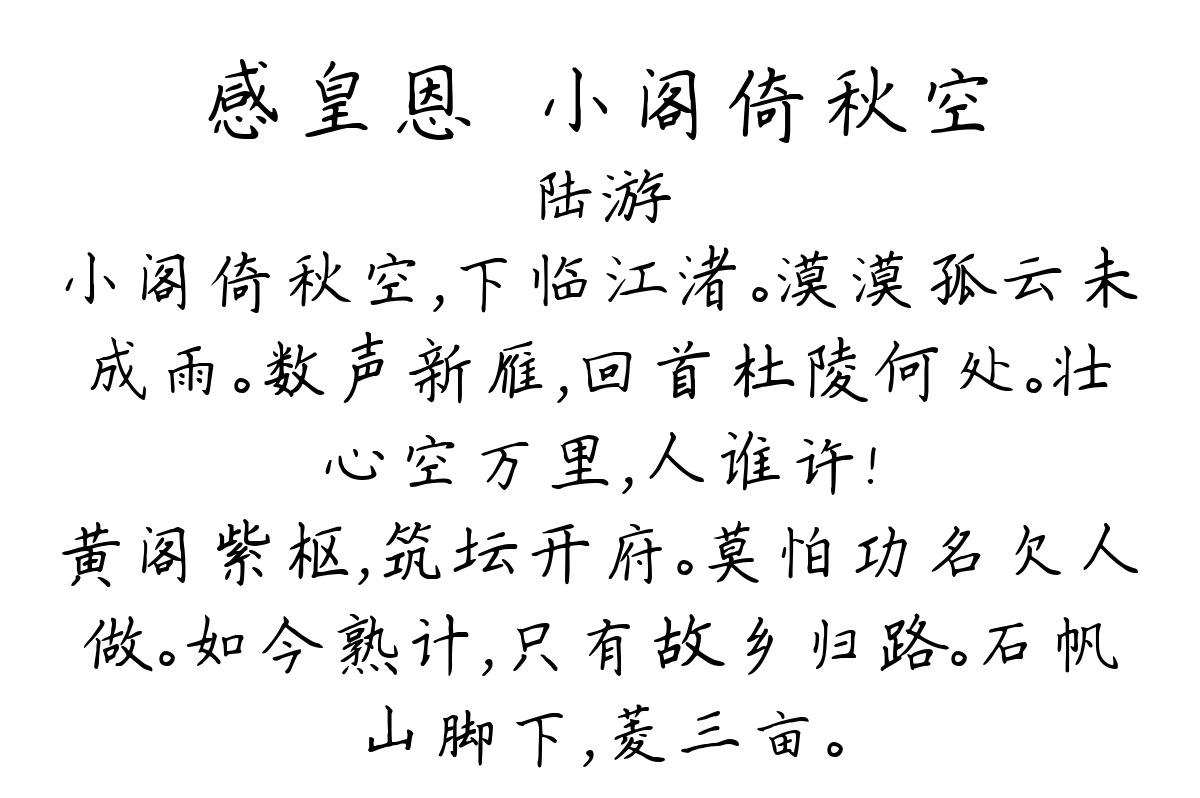 感皇恩 小阁倚秋空
陆游
小阁倚秋空,下临江渚。漠漠孤云未
成雨。数声新雁,回首杜陵何处。壮
心空万里,人谁许!
黄阁紫枢,筑坛开府。莫怕功名欠人
做。如今熟计,只有故乡归路。石帆
山脚下,菱三亩。